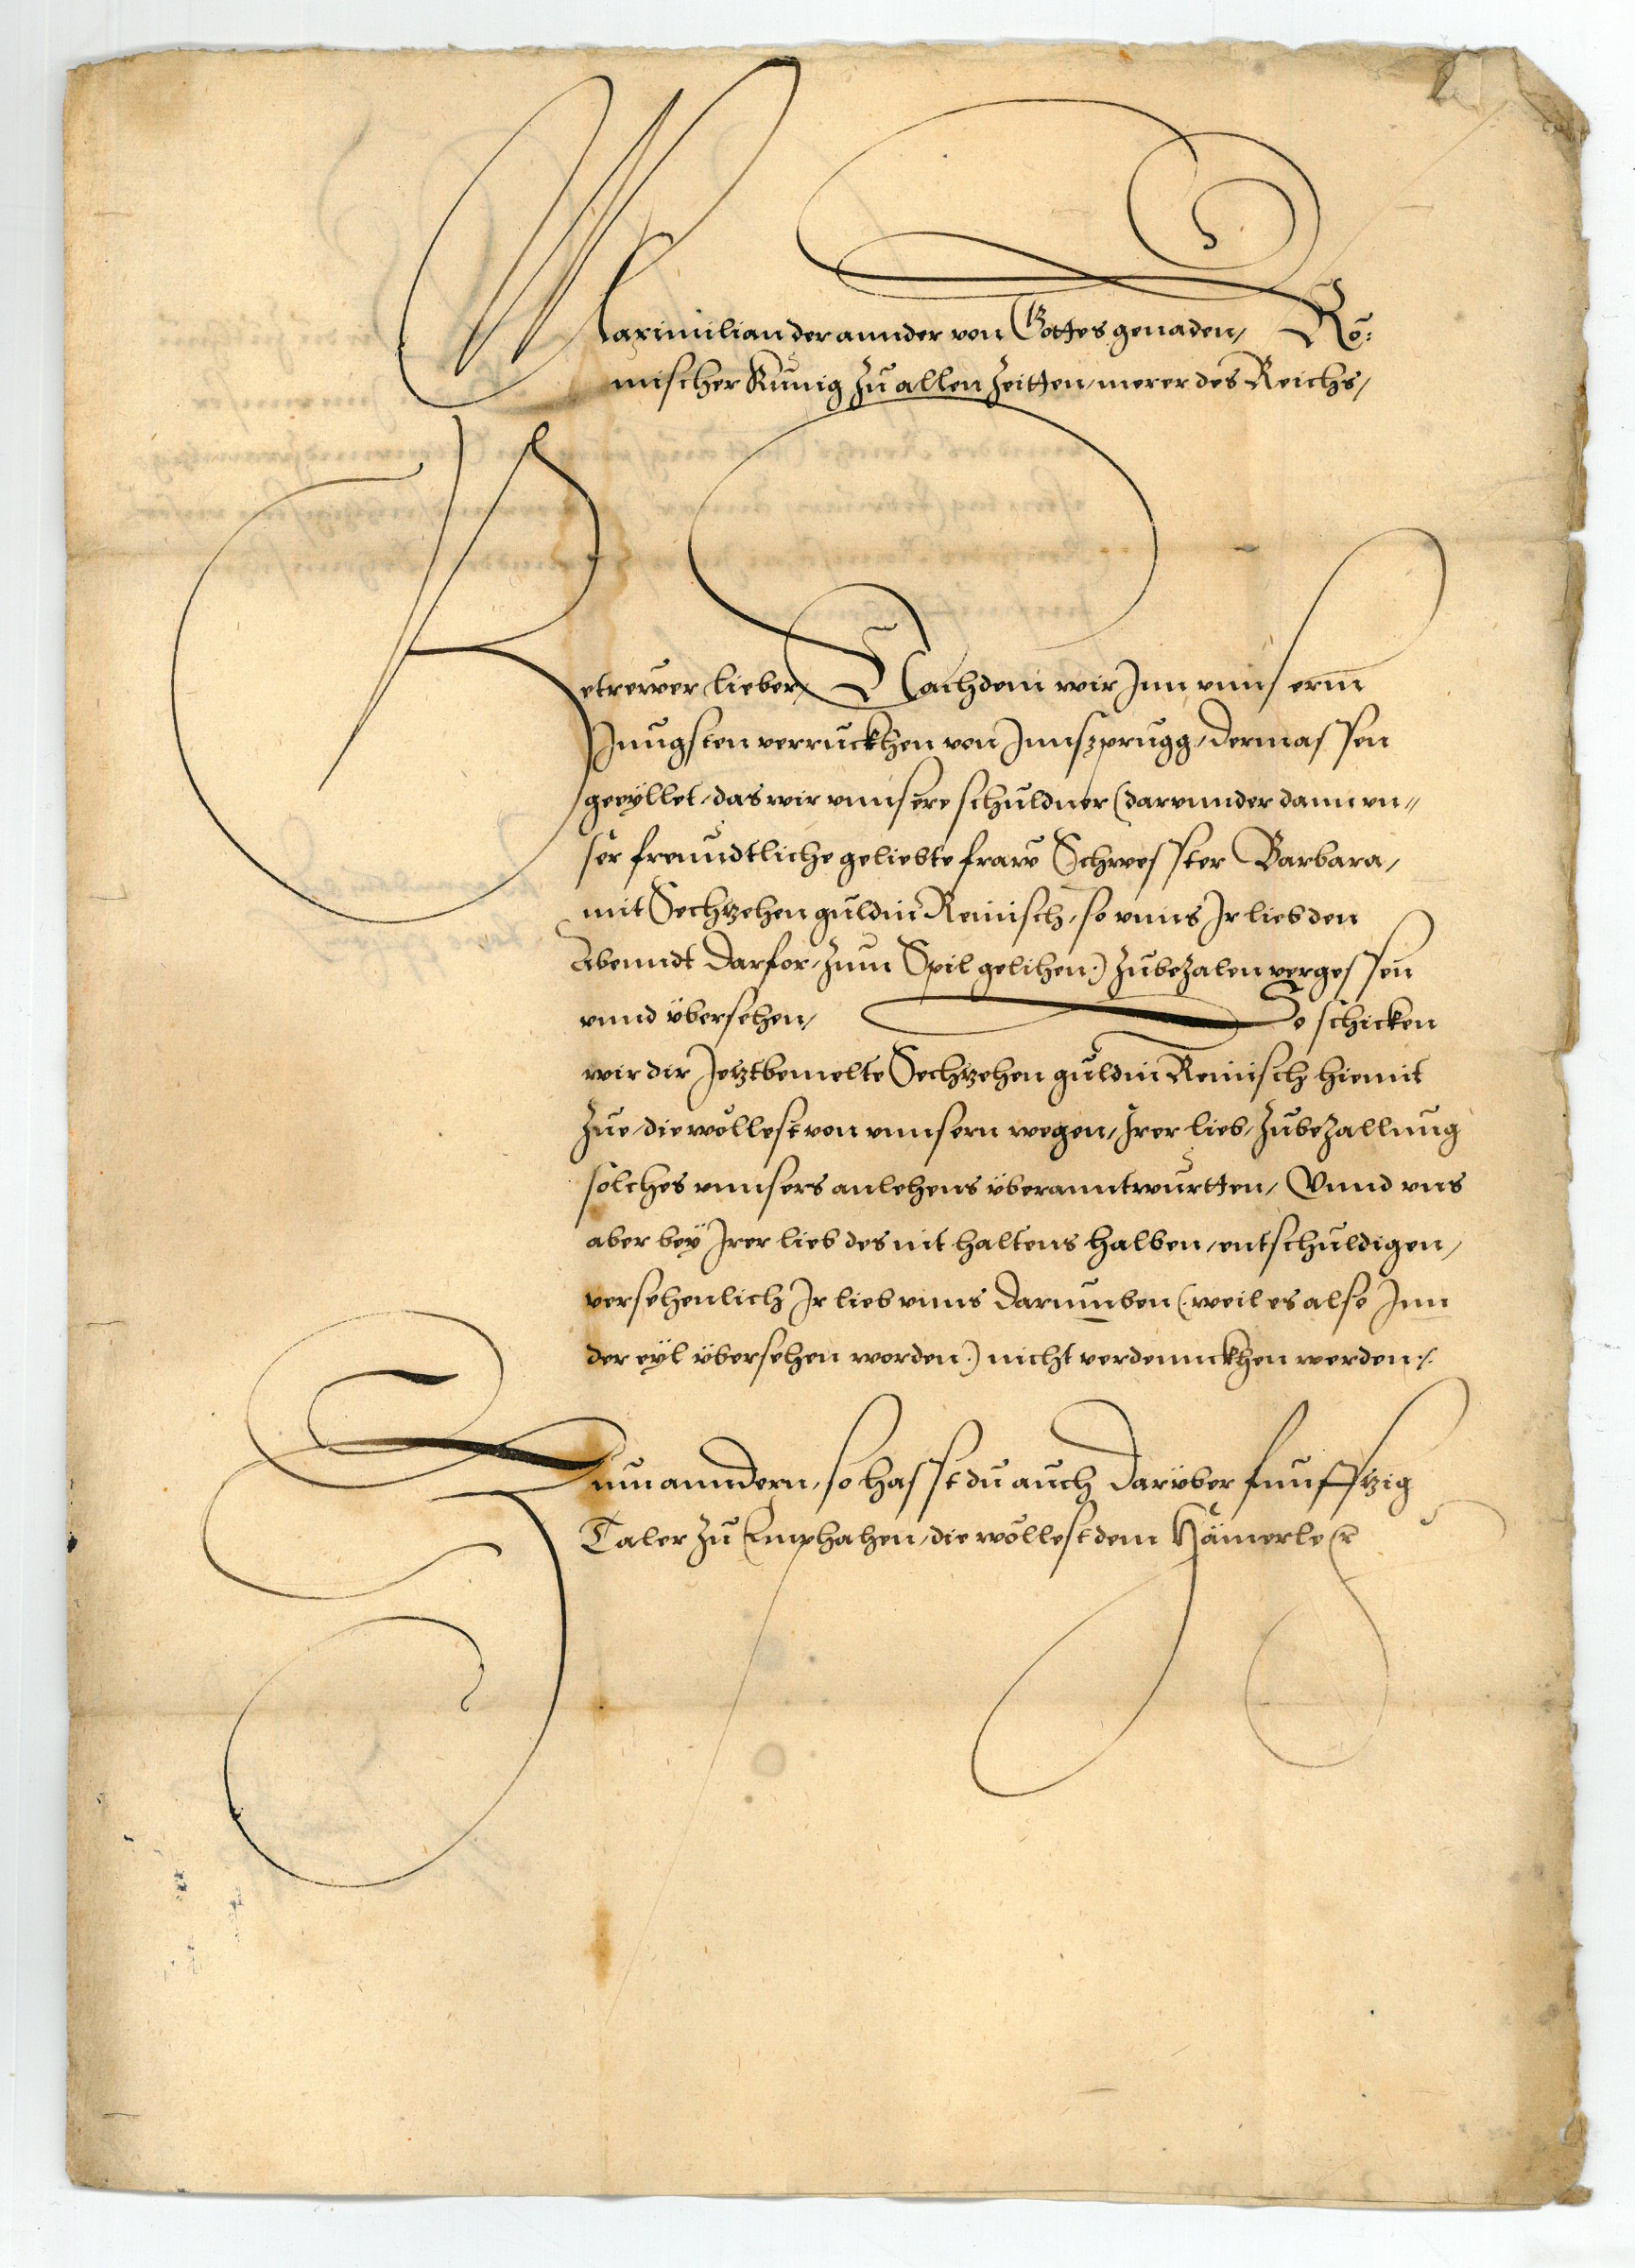 Maximilian der annder von Gottes genaden, Rö:
mischer Kunig zu allen Zeitten, merer des Reichs,
Getrewer lieber, Nachdem wir Inn vnnserm
Jnngsten verruckhen von Jnnszprugg, dermassen
geeyllet, das wir vnnsere schuldner (darunnder dann vn„
ser freundtliche geliebte fraw Schwesster Barbara,
mit Sechtzehen guldin Reinisch, so vnns Ir lieb den
Abenndt darfor, zum Spil gelihen:) zubezalen vergessen
vnnd vbersehen, So schicken
wir dir Jetztbemelte Sechtzehen guldin Reinisch hiemit
Zue, die wöllest von vnnsern wegen, Irer lieb, zubezallung
solches vnnsers anlehens vberanntwurtten, Vnnd vns
aber bey Irer lieb des nit haltens halben, entschuldigen,
versehenlich Ir lieb vnns darumben (:weil es also Inn
der eyl vbersehen worden:) nicht verdennckhen werden:/:
Zum anndern, so hasst du auch darüber funfftzig
Taler zu Emphahen, die wöllest dem Hämerle